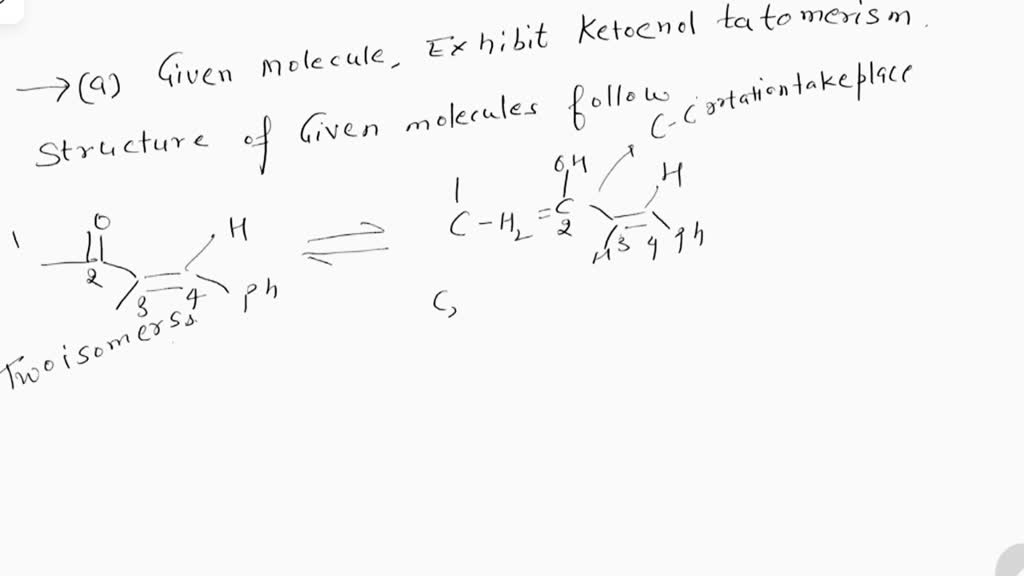 →(a) Given molecule, Exhibit Ketoenol tatomerism.
Structure of Given molecules follow
C-C rotation take place
1 O 2 3 4 H Ph
1 C-H2=C 2 OH H 3 4 H Ph
Two isomerss.
C,